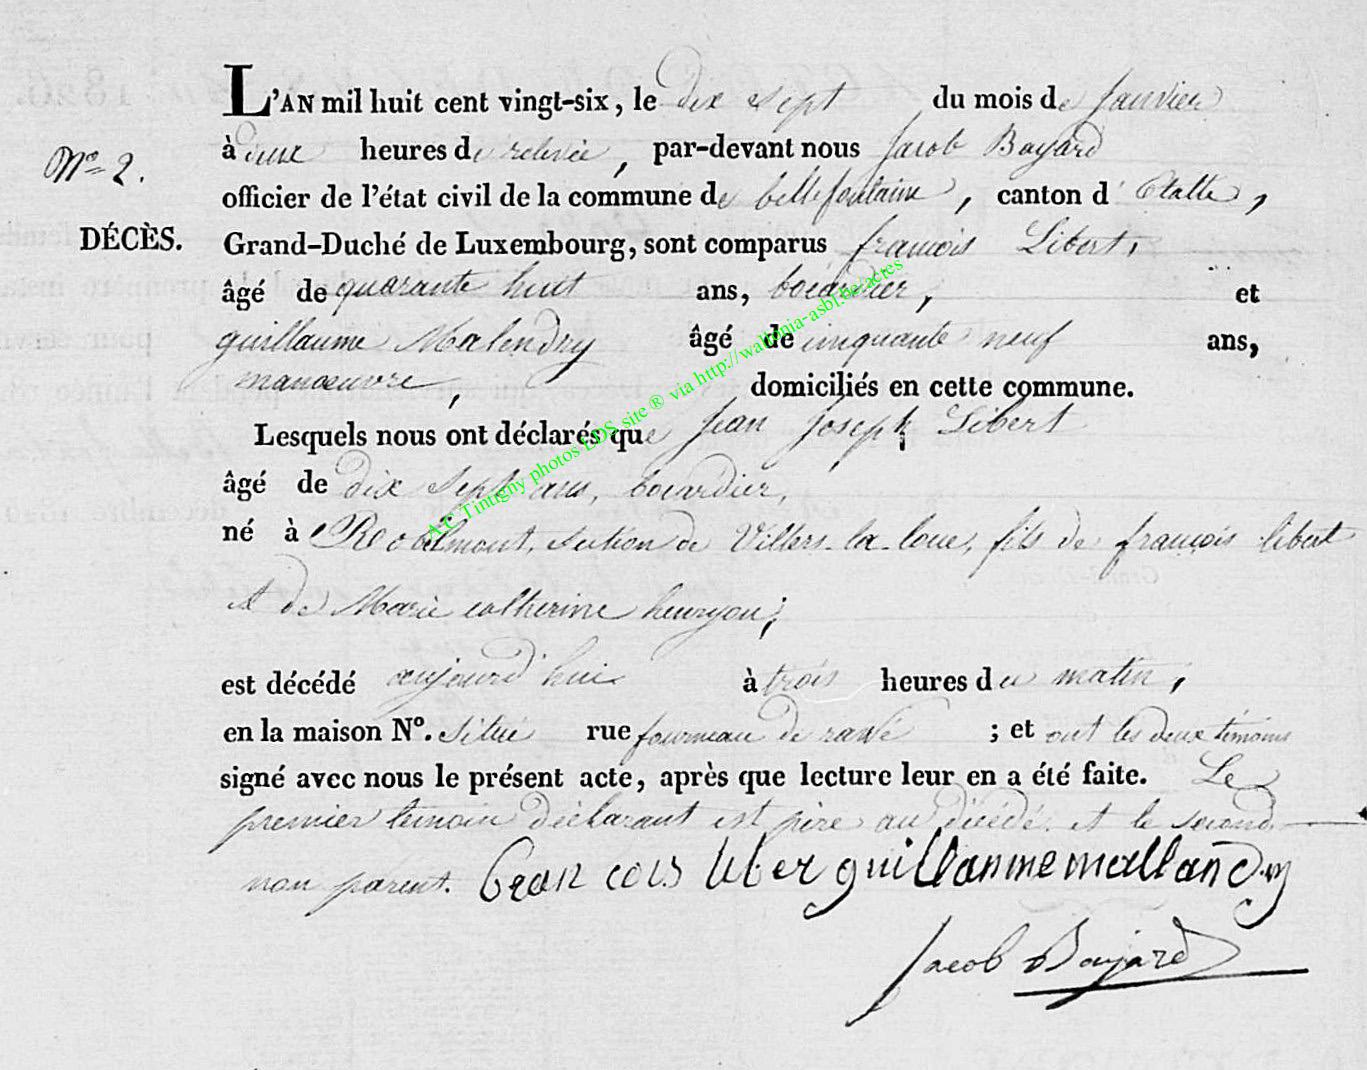 L'AN mil huit cent vingt-six, le dix sept du mois de Janvier
N° 2. à deux heures de relevée, par-devant nous Jacob Boyard
officier de l'état civil de la commune de bellefontaine, canton d'Etalle,
DÉCÈS. Grand-Duché de Luxembourg, sont comparus françois Libert,
âgé de quarante huit ans, bocardier, et
guillaume Malendry âgé de cinquante neuf ans,
manoeuvre, domiciliés en cette commune.
Lesquels nous ont déclarés que Jean Joseph Libert
âgé de dix sept ans, bocardier,
né à Robelmont, section de Villers-la-loue, fils de françois libert
et de Marie catherine henryon;
est décédé aujourd'hui à trois heures du matin,
en la maison N°. situé rue fourneau de rawé ; et ont les deux témoins
signé avec nous le présent acte, après que lecture leur en a été faite. Le
premier temoin déclarant est père au décédé. et le second
non parent. fran cois liber guillaume mallandry
Jacob Boyard
A.C Tintigny photos LDS site ® via http://wallonia-asbl.be/actes